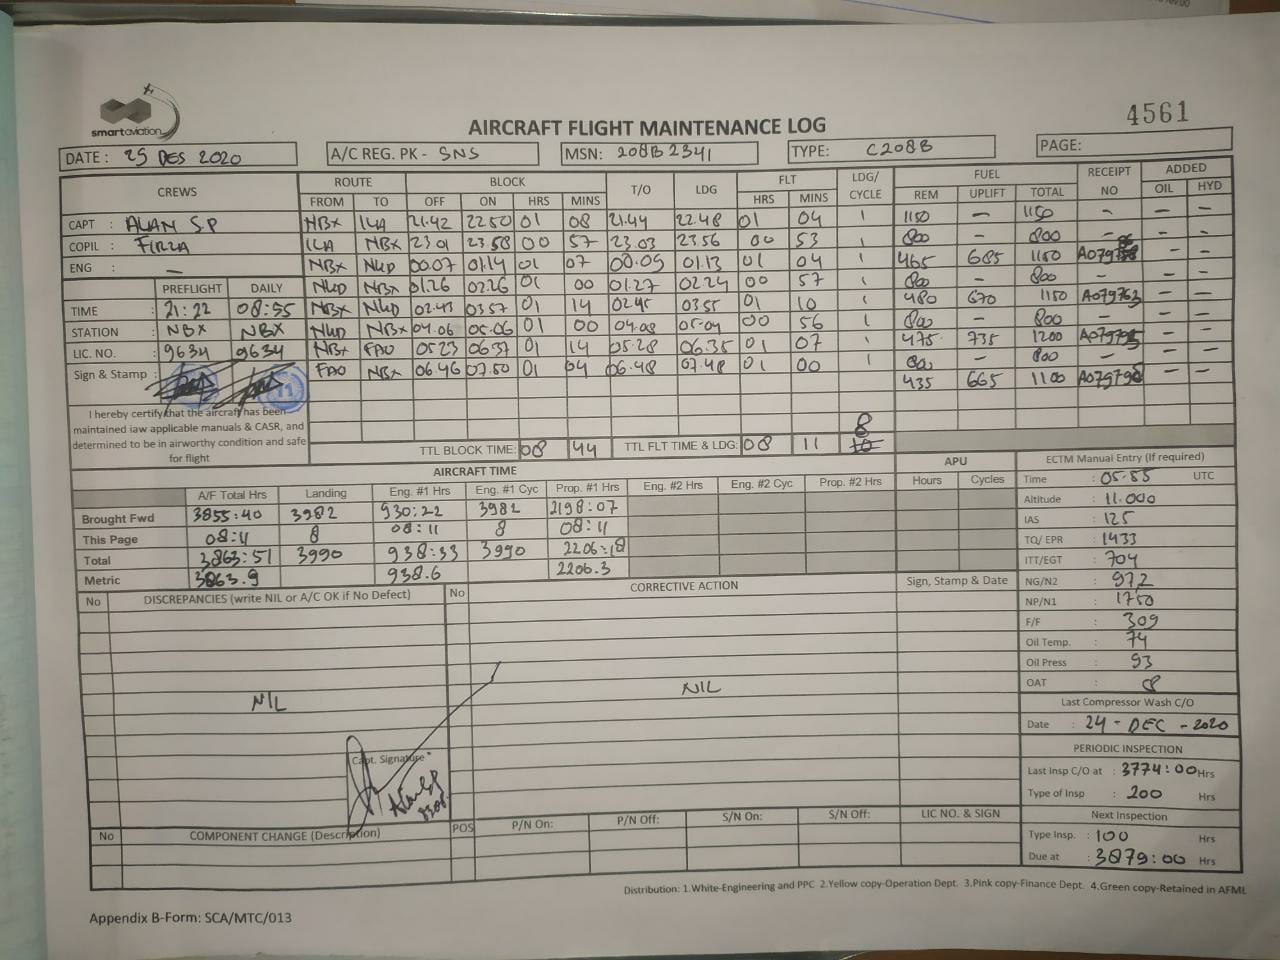 4561
smartaviation
AIRCRAFT FLIGHT MAINTENANCE LOG
DATE : 25 DES 2020 A/C REG. PK - SNS MSN: 208B2341 TYPE: C208B PAGE:
CREWS ROUTE BLOCK T/O LDG FLT LDG/ CYCLE FUEL RECEIPT NO ADDED
FROM TO OFF ON HRS MINS HRS MINS REM UPLIFT TOTAL OIL HYD
CAPT : ALAN S.P NBX ILA 21.42 22.50 01 08 21.44 22.48 01 04 1 1150 - 1150 - - -
COPIL : FIRZA ILA NBX 23.01 23.58 00 57 23.03 23.56 00 53 1 800 - 800 - - -
ENG : - NBX NUD 00.07 01.14 01 07 00.09 01.13 01 04 1 465 685 1150 - -
PREFLIGHT DAILY NUD NBX 01.26 02.26 01 00 01.27 02.24 00 57 1 800 - 800 - - -
TIME : 21:22 08:55 NBX NUD 02.43 03.57 01 14 02.45 03.55 01 10 1 480 670 1150 A079763 - -
STATION : NBX NBX NUD NBX 04.06 05.06 01 00 04.08 05.04 00 56 1 800 - 800 - - -
LIC. NO. : 9634 9634 NBX FAO 05.23 06.37 01 14 05.28 06.35 01 07 1 475 735 1200 - -
Sign & Stamp : FAO NBX 06.46 07.50 01 04 06.48 07.48 01 00 1 800 - 800 - - -
435 665 1100 - -
I hereby certify that the aircraft has been
maintained iaw applicable manuals & CASR, and
determined to be in airworthy condition and safe
for flight
TTL BLOCK TIME: 08 44 TTL FLT TIME & LDG: 08 11 8 10
AIRCRAFT TIME APU ECTM Manual Entry (If required)
A/F Total Hrs Landing Eng. #1 Hrs Eng. #1 Cyc Prop. #1 Hrs Eng. #2 Hrs Eng. #2 Cyc Prop. #2 Hrs Hours Cycles
Brought Fwd 3855:40 3982 930:22 3982 2198:07
This Page 08:11 8 08:11 8 08:11
Total 3863:51 3990 938:33 3990 2206:18
Metric 3863.9 938.6 2206.3
Time : 05.55 UTC
Altitude : 11.000
IAS : 125
TQ/ EPR : 1433
ITT/EGT : 704
NG/N2 : 97,2
NP/N1 : 1750
F/F : 309
Oil Temp. : 74
Oil Press : 93
OAT : 08
No DISCREPANCIES (write NIL or A/C OK if No Defect) No CORRECTIVE ACTION Sign, Stamp & Date
NIL NIL
Capt. Signature
Last Compressor Wash C/O
Date : 24 - DEC - 2020
PERIODIC INSPECTION
Last Insp C/O at : 3774:00 Hrs
Type of Insp : 200 Hrs
Next Inspection
Type Insp. : 100 Hrs
Due at : 3879:00 Hrs
No COMPONENT CHANGE (Description) POS P/N On: P/N Off: S/N On: S/N Off: LIC NO. & SIGN
Distribution: 1.White-Engineering and PPC 2.Yellow copy-Operation Dept. 3.Pink copy-Finance Dept. 4.Green copy-Retained in AFML
Appendix B-Form: SCA/MTC/013